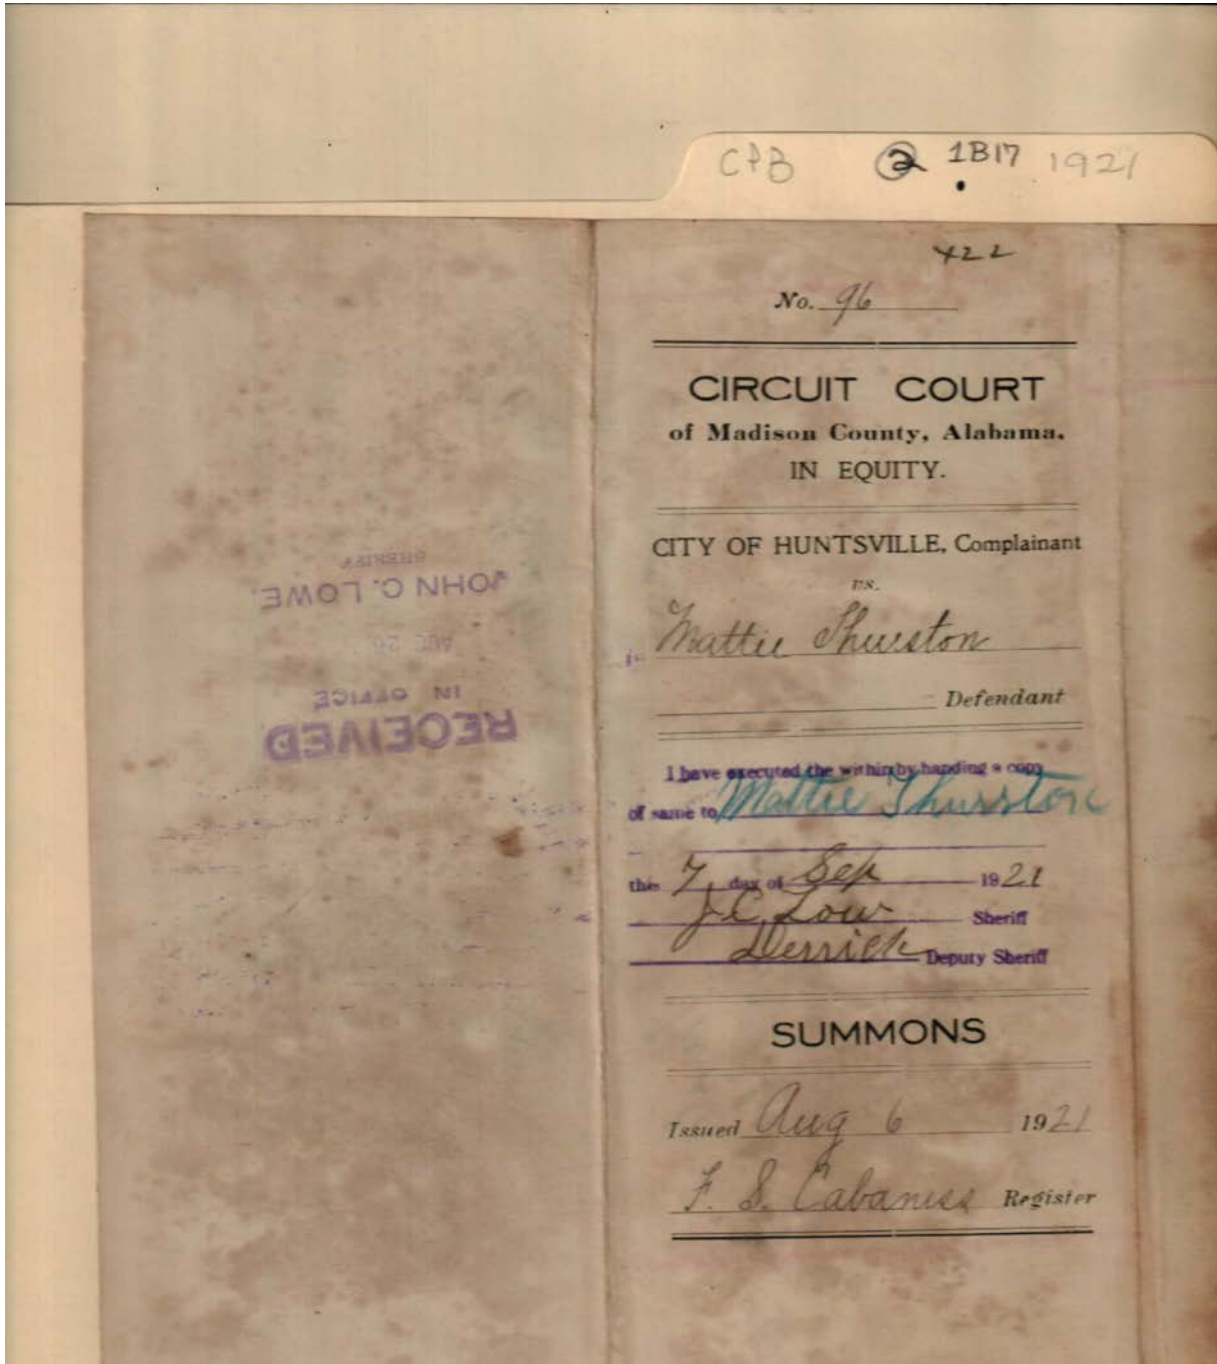 CPB 2 1B17 1921
422
No. 96
CIRCUIT COURT
of Madison County, Alabama.
IN EQUITY.
CITY OF HUNTSVILLE, Complainant
vs.
Mattie Thurston
Defendant
I have executed the within by handing a copy
of same to Mattie Thurston
this 7 day of Sep 1921
J C Low Sheriff
Derrick Deputy Sheriff
SUMMONS
Issued Aug 6 1921
F. S. Cabaniss Register
RECEIVED
IN OFFICE
AUG 26
JOHN C. LOWE,
SHERIFF